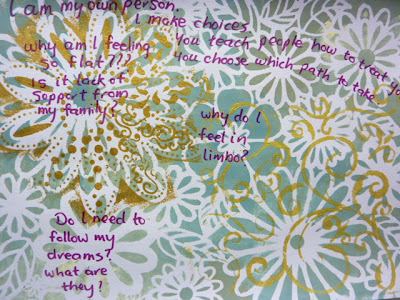 I am my own person.
I make choices
You teach people how to treat you
You choose which path to take
why am I feeling
so flat???
Is it lack of
support from
my family?
why do I
feel in
limbo?
Do I need to
follow my
dreams?
what are
they?